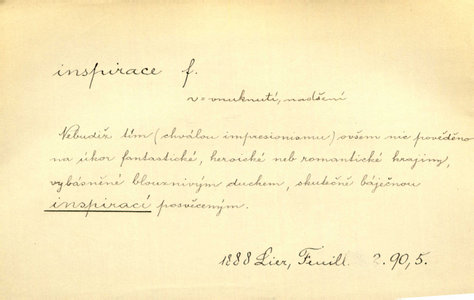 inspirace f.
v = vnuknutí, nadšení
Nebudiž tím (chválou impresionismu) ovšem nic pověděno
na úkor fantastické, heroické neb romantické krajiny,
vybásněné blouznivým duchem, skutečně báječnou
inspirací posvěceným.
1888 Lier, Feuill. 2. 90, 5.